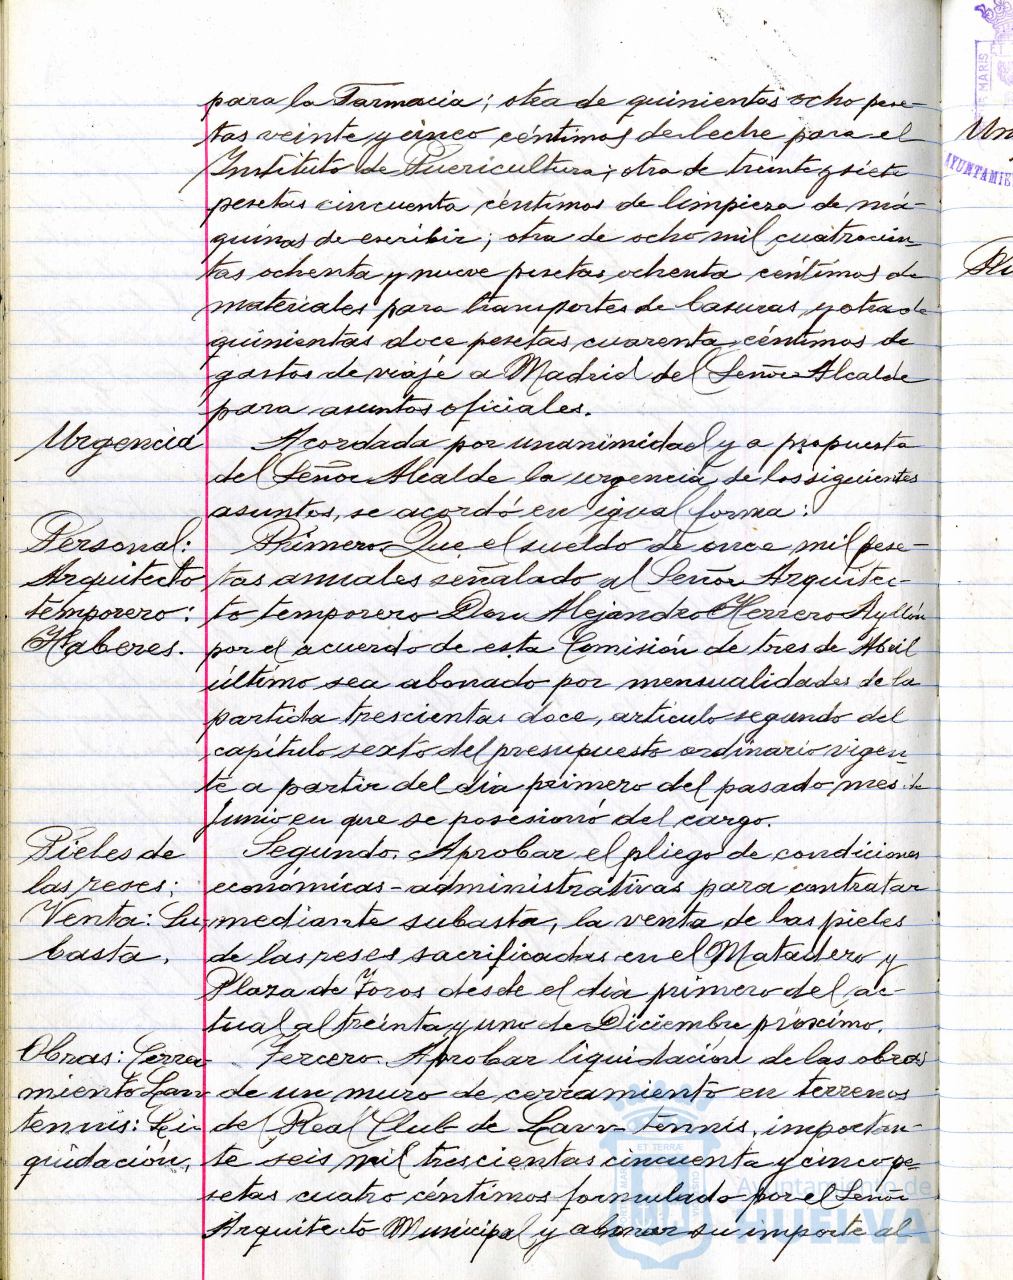 para la Farmacia; otra de quinientas ocho pese-
tas veinte y cinco céntimos de leche para el
Instituto de Puericultura; otra de treinta y siete
pesetas cincuenta céntimos de limpieza de má-
quinas de escribir; otra de ocho mil cuatrocien-
tas ochenta y nueve pesetas ochenta céntimos de
materiales para transportes de basuras, y otra de
quinientas doce pesetas cuarenta céntimos de
gastos de viaje a Madrid del Señor Alcalde
para asuntos oficiales.
Urgencia
Acordada por unanimidad y a propuesta
del Señor Alcalde la urgencia de los siguientes
asuntos, se acordó en igual forma:
Personal:
Arquitecto
temporero:
Haberes.
Primero. Que el sueldo de once mil pese-
tas anuales señalado al Señor Arquitec-
to temporero Don Alejandro Herrero Ayllón
por el acuerdo de esta Comisión de tres de Abril
último sea abonado por mensualidades de la
partida trescientas doce, artículo segundo del
capítulo sexto del presupuesto ordinario vigen-
te a partir del día primero del pasado mes de
Junio en que se posesionó del cargo.
Pieles de
las reses;
Venta: Su-
basta.
Segundo. Aprobar el pliego de condiciones
económicas-administrativas para contratar
mediante subasta, la venta de las pieles
de las reses sacrificadas en el Matadero y
Plaza de Toros desde el día primero del ac-
tual al treinta y uno de Diciembre próximo.
Obras: Cerra-
miento Lawn
tennis: Li-
quidación.
Tercero. Aprobar liquidación de las obras
de un muro de cerramiento en terrenos
del Real Club de Lawn tennis, importan-
te seis mil trescientas cincuenta y cinco pe-
setas cuatro céntimos formulado por el Señor
Arquitecto Municipal y abonar su importe al
Ayuntamiento de
HUELVA